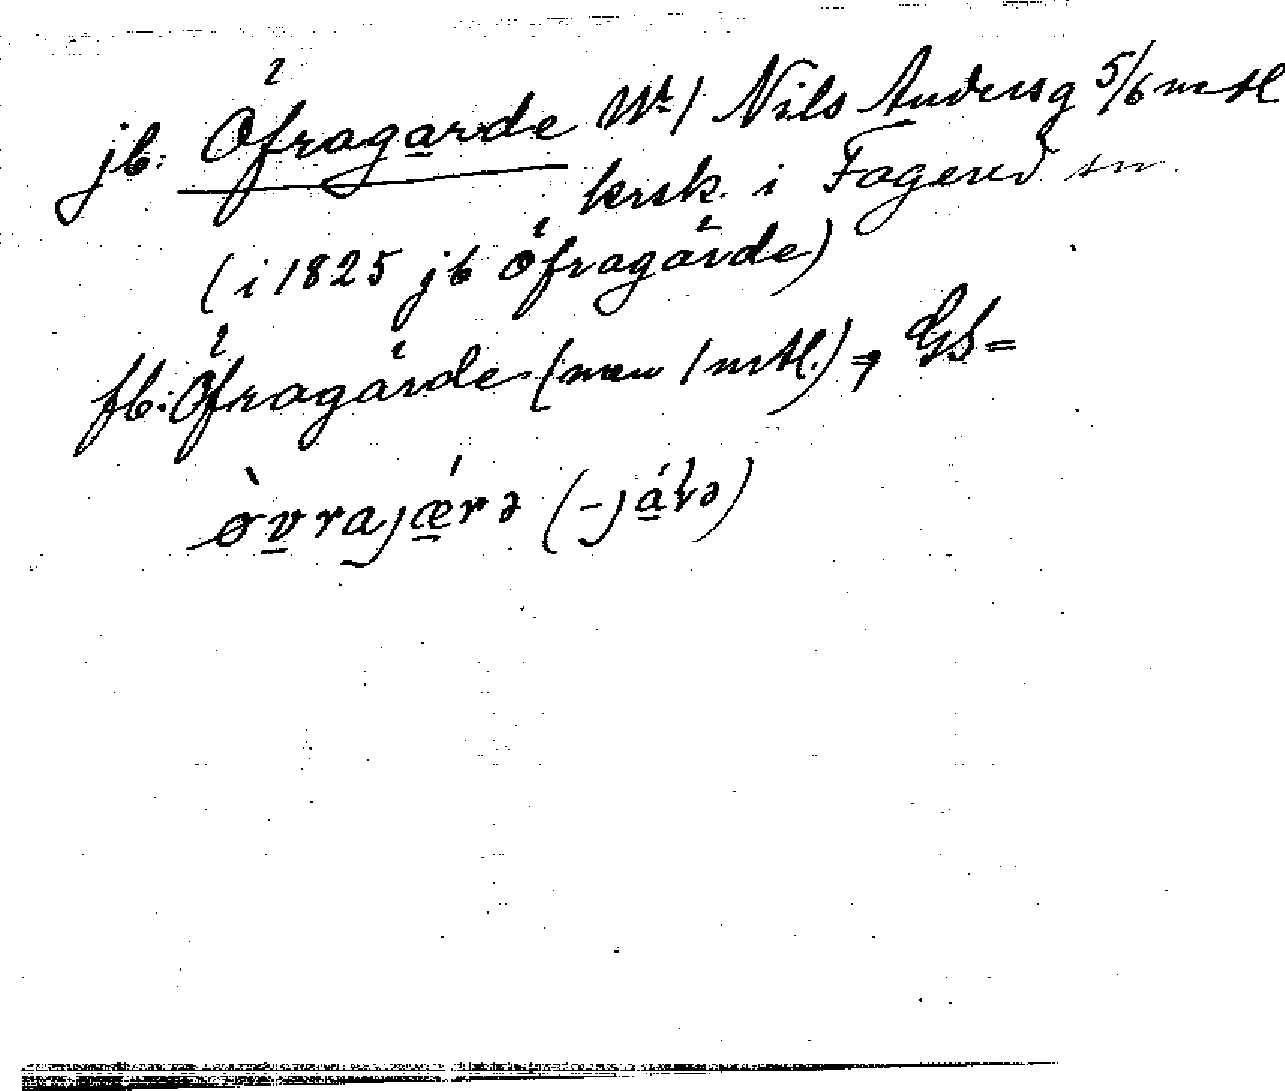 jb: Öfragarde Nr 1 Nils Andersg 5/6 mtl
krsk. i Fagered sn
(i 1825 jb Öfragärde)
fb: Öfragärde (men 1 mtl.) Gs =
òvrajǽrə (-já